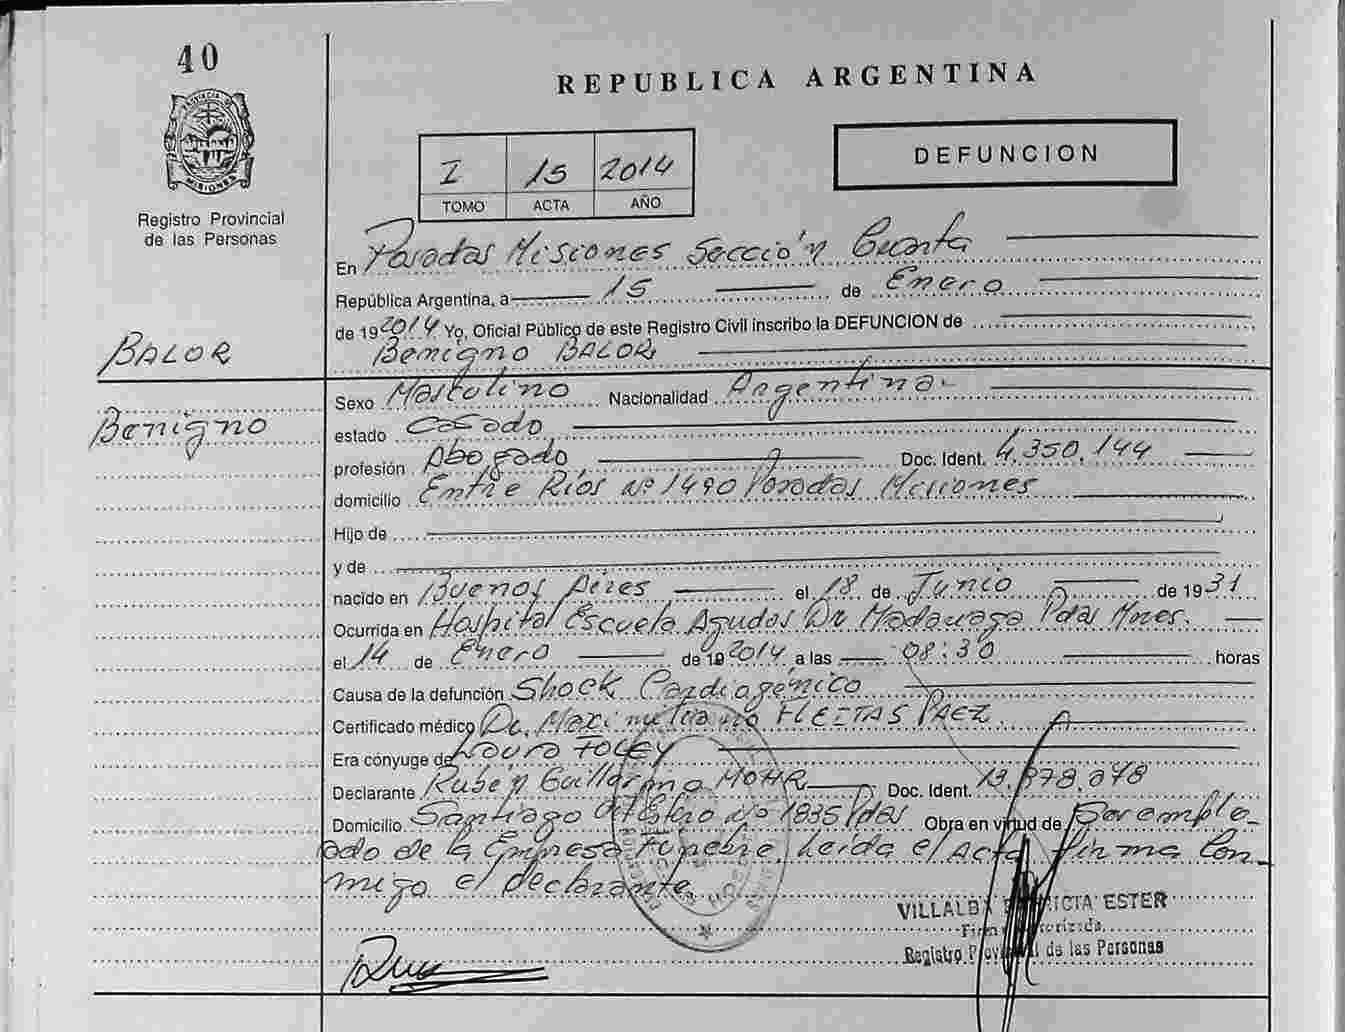 40
REPUBLICA ARGENTINA
PROVINCIA DE
MISIONES
DEFUNCION
I 15 2014
TOMO ACTA AÑO
Registro Provincial
de las Personas
En Posadas Misiones Sección Cuarta
República Argentina, a 15 de Enero
de 192014 Yo, Oficial Público de este Registro Civil inscribo la DEFUNCION de
Benigno BALOR
BALOR
Benigno
Sexo Masculino Nacionalidad Argentina.
estado Casado
profesión Abogado Doc. Ident. 4.350.144
domicilio Entre Ríos Nº 1490 Posadas Misiones
Hijo de
y de
nacido en Buenos Aires el 18 de Junio de 1931
Ocurrida en Hospital Escuela Agudos Dr Madariaga Pdas Mnes.
el 14 de Enero de 192014 a las 08:30 horas
Causa de la defunción Shock Cardiogénico
Certificado médico Dr. Maximiliano FLEITAS PAEZ
Era cónyuge de Laura FOLEY
Declarante Ruben Guillermo MOHR Doc. Ident. 13.878.078
Domicilio Santiago del Estero Nº 1835 Pdas Obra en virtud de Ser emplea-
ado de la Empresa Fúnebre. Leída el Acta firma Con-
migo el declarante.
VILLALBA PATRICIA ESTER
Firma Autorizada
Registro Provincial de las Personas